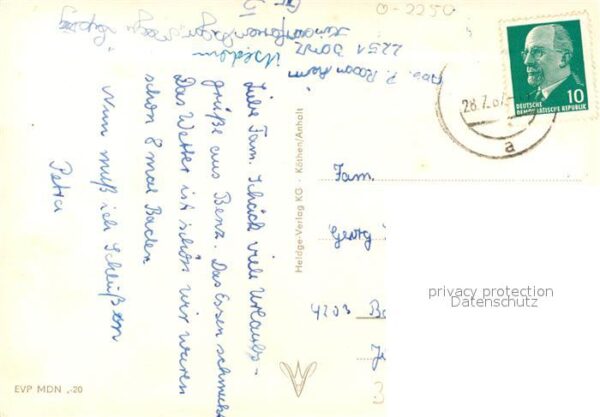 O-2250
Abs. P.
2251 Benz
Usedom
Liebe Fam. Schick viele Urlaubs-
grüße aus Benz. Das Essen schmeckt
Das Wetter ist schön wir waren
schon 8 mal Baden
Nun muß ich Schließen
Petra
Heldge-Verlag KG · Köthen/Anhalt
EVP MDN -,20
10
DEUTSCHE
DEMOKRATISCHE REPUBLIK
28.7.67
a
Fam.
Georg
4203 Ba
privacy protection
Datenschutz